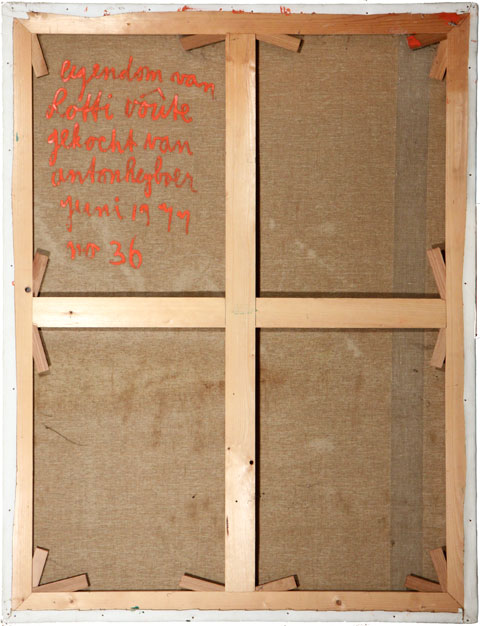 eigendom van
Lotti voûte
gekocht van
anton heyboer
juni 1977
no 36